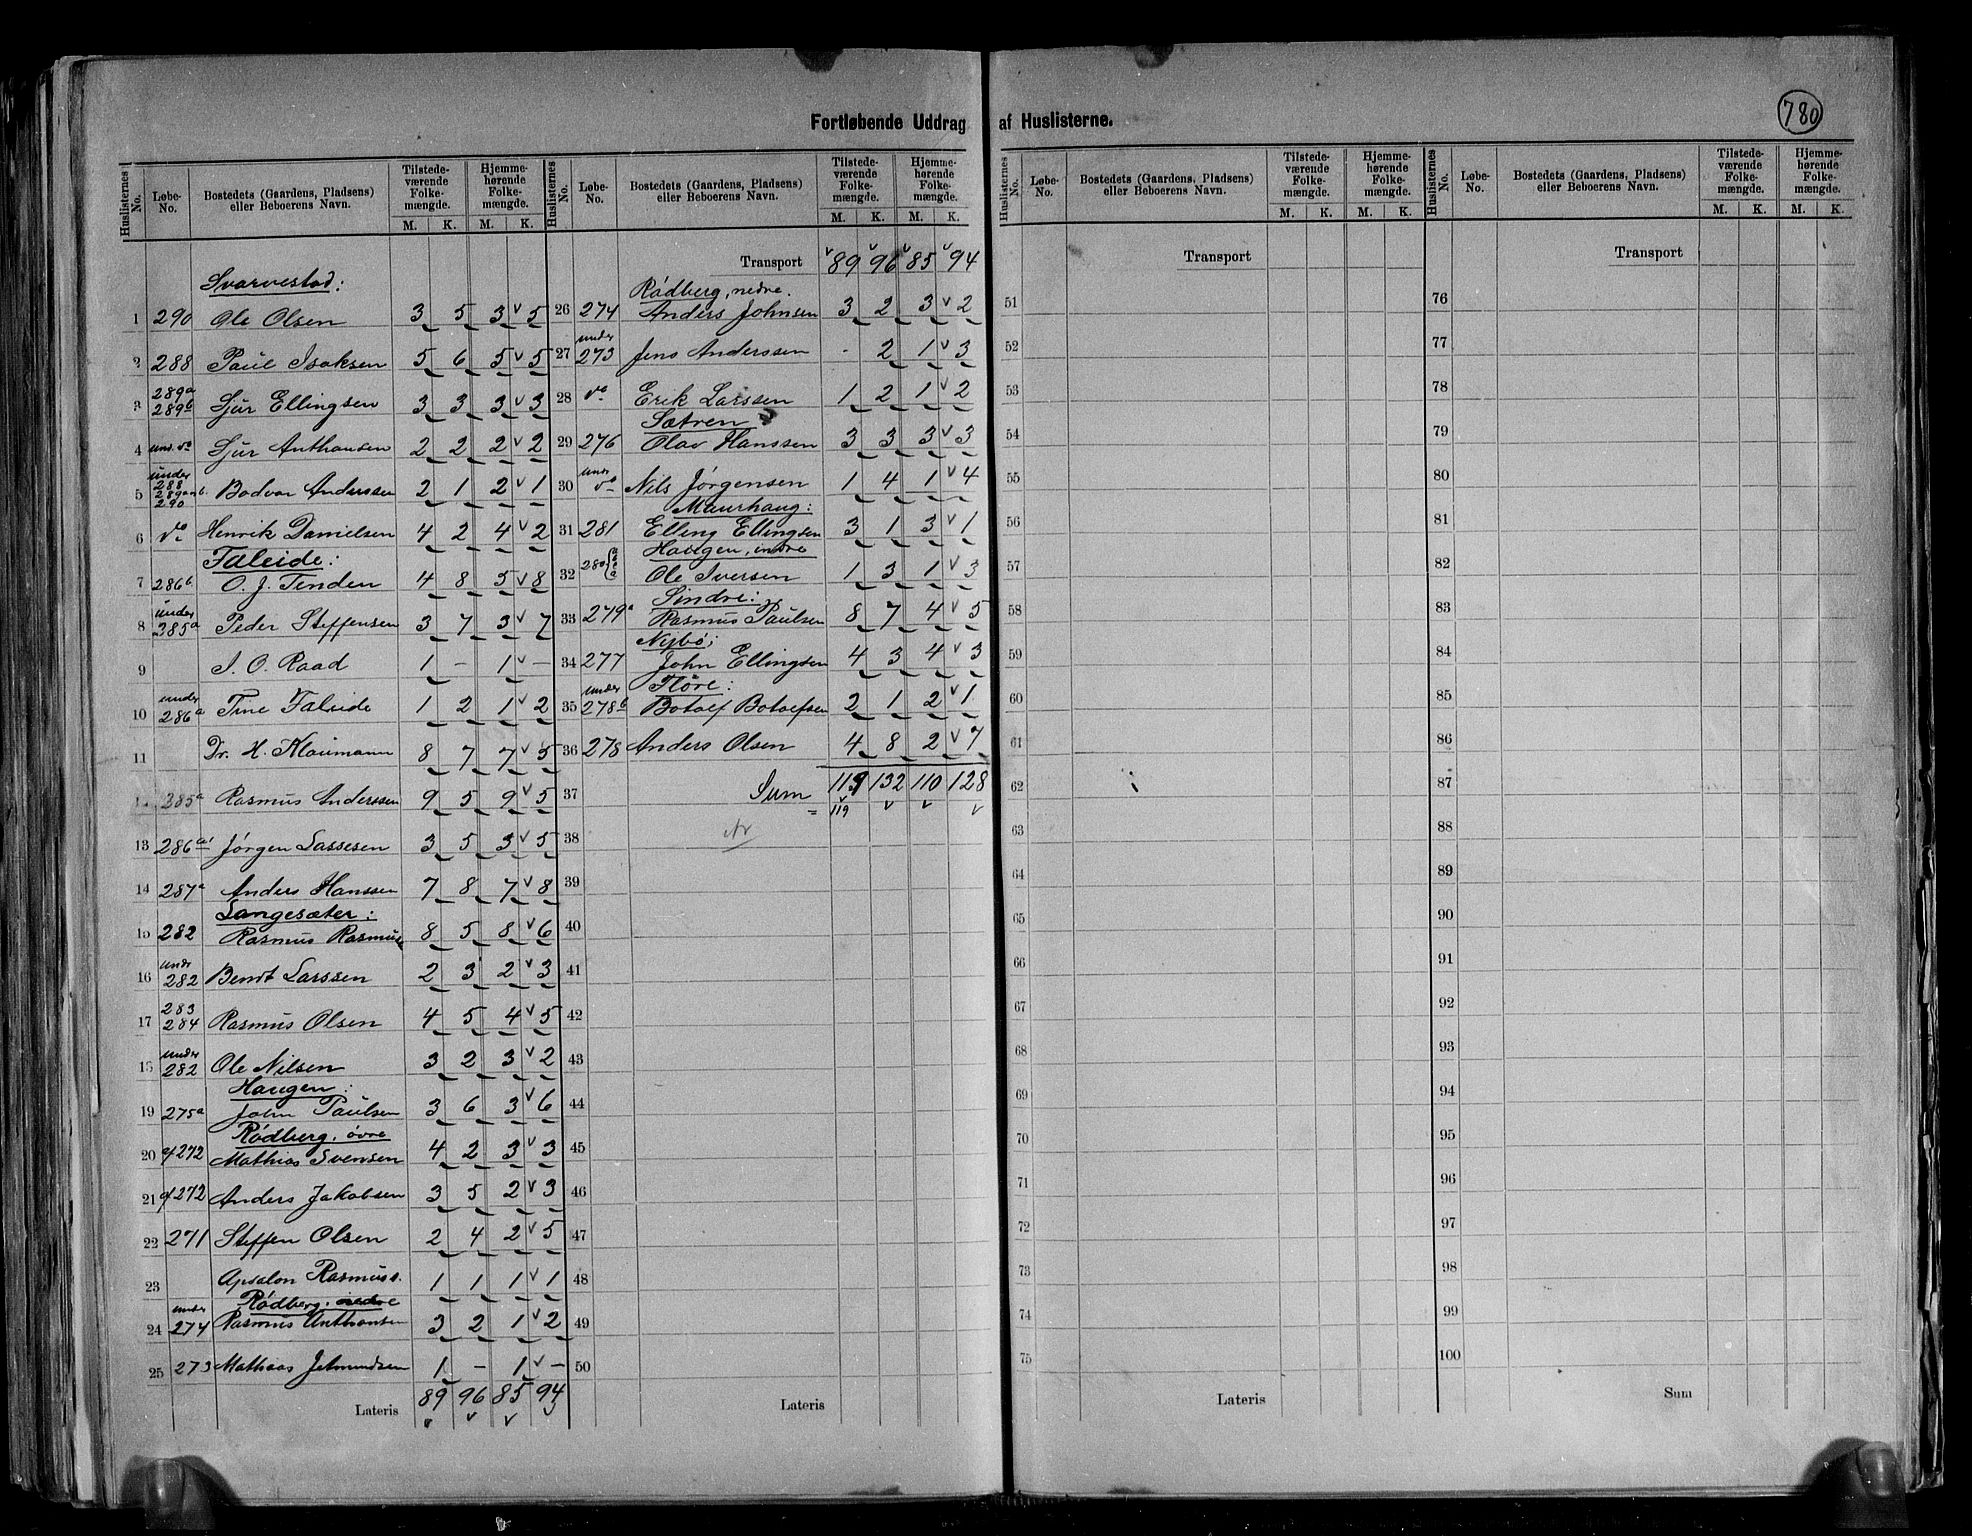 Fortløbende Uddrag af Huslisterne.
780
Huslisternes No. | Løbe-No. | Bostedets (Gaardens, Pladsens) eller Beboerens Navn. | Tilstedeværende Folkemængde. M. K. | Hjemmehørende Folkemængde. M. K.
Svarvestad:
1 290 Ole Olsen 3 5 3 v 5
2 288 Paul Isaksen 5 6 5 v 5
3 289a 289b Sjur Ellingsen 3 3 3 v 3
4 und. do Sjur Anthonsen 2 2 2 v 2
5 under 288 289a og b. 290 Bodvar Anderssen 2 1 2 v 1
6 do Henrik Danielsen 4 2 4 v 2
Faleide:
7 286b O. J. Tenden 4 8 5 v 8
8 under 285a Peder Steffensen 3 7 3 v 7
9 J. O. Raad 1 – 1 v –
10 under 286a Tine Faleide 1 2 1 v 2
11 Dr. H. Klaumann 8 7 7 v 5
12 285a Rasmus Anderssen 9 5 9 v 5
13 286a Jørgen Lassesen 3 5 3 v 5
14 287a Anders Hanssen 7 8 7 v 8
Langesæter:
15 282 Rasmus Rasmus 8 5 8 v 6
16 undr 282 Bendt Larssen 2 3 2 v 3
17 283 284 Rasmus Olsen 4 5 4 v 5
18 under 282 Ole Nilsen 3 2 3 v 2
Haugen:
19 275a John Paulsen 3 6 3 v 6
Rødberg, øvre
20 272 Mathias Svensen 4 2 3 v 3
21 272 Anders Jakobsen 3 5 2 v 3
22 271 Steffen Olsen 2 4 2 v 5
23 Apsalon Rasmuss. 1 1 1 v 1
Rødberg, nedre
24 under 274 Rasmus Anthonsen 3 2 1 v 2
25 273 Mathias Jetmundsen 1 – 1 v –
Lateris 89 96 85 94
Huslisternes No. | Løbe-No. | Bostedets (Gaardens, Pladsens) eller Beboerens Navn. | Tilstedeværende Folkemængde. M. K. | Hjemmehørende Folkemængde. M. K.
Transport 89 96 85 94
Rødberg, nedre.
26 274 Anders Johnsen 3 2 3 v 2
27 under 273 Jens Anderssen - 2 1 v 3
28 do Erik Larssen 1 2 1 v 2
Sætren
29 276 Olav Hanssen 3 3 3 v 3
30 undr do Nils Jørgensen 1 4 1 v 4
Maurhaug:
31 281 Elling Ellingsen 3 1 3 v 1
Haugen, indre
32 280 Ole Iversen 1 3 1 v 3
Sindre:
33 279a Rasmus Paulsen 8 7 4 v 5
Nybø:
34 277 John Ellingsen 4 3 4 v 3
Flore:
35 under 278b Botolf Botolfsen 2 1 2 v 1
36 278 Anders Olsen 4 8 2 v 7
37 Sum 119 132 110 128
119
38
39
40
41
42
43
44
45
46
47
48
49
50
Lateris
Huslisternes No. | Løbe-No. | Bostedets (Gaardens, Pladsens) eller Beboerens Navn. | Tilstedeværende Folkemængde. M. K. | Hjemmehørende Folkemængde. M. K.
Transport
51
52
53
54
55
56
57
58
59
60
61
62
63
64
65
66
67
68
69
70
71
72
73
74
75
Lateris
Huslisternes No. | Løbe-No. | Bostedets (Gaardens, Pladsens) eller Beboerens Navn. | Tilstedeværende Folkemængde. M. K. | Hjemmehørende Folkemængde. M. K.
Transport
76
77
78
79
80
81
82
83
84
85
86
87
88
89
90
91
92
93
94
95
96
97
98
99
100
Sum